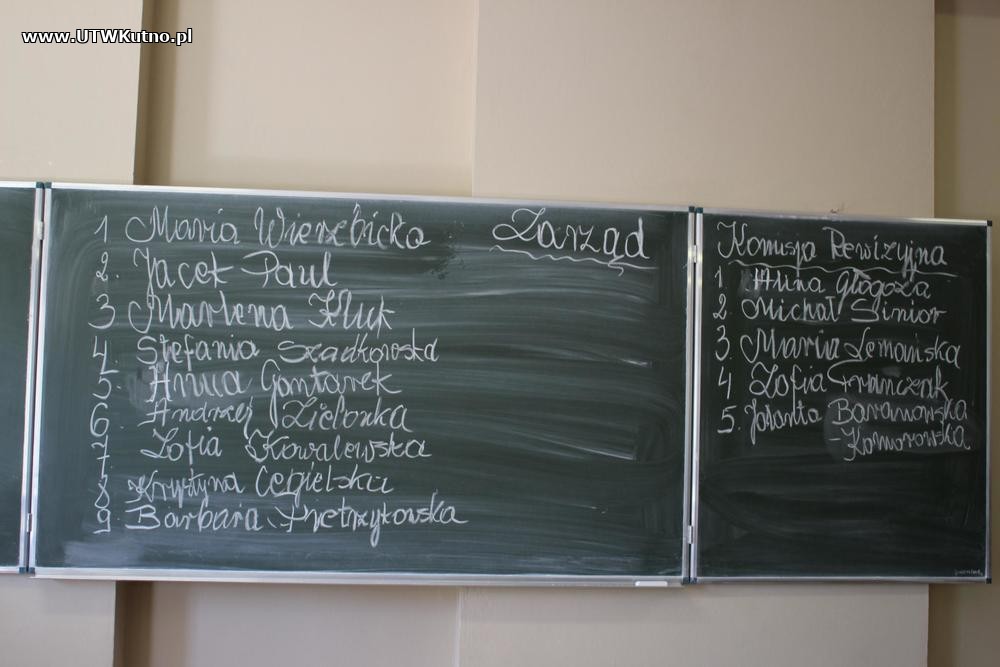 www.UTWKutno.pl
Zarząd
1 Maria Wierzbicka
2. Jacek Paul
3 Marlena Kluk
4. Stefania Szadkowska
5. Anna Gontarek
6 Andrzej Zielonka
7 Zofia Kowalewska
8 Krystyna Cegielska
9 Barbara Pietrzykowska
Komisja Rewizyjna
1 Anna Głogoza
2. Michał Sinior
3. Maria Lemańska
4 Zofia Franczak
5. Jolanta Baranowska
-Komorowska